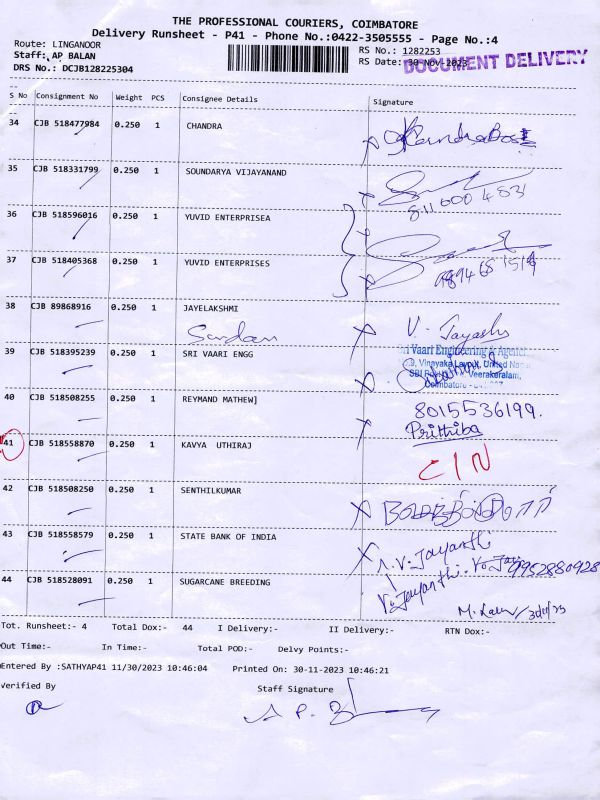 THE PROFESSIONAL COURIERS, COIMBATORE
Delivery Runsheet - P41 - Phone No.:0422-3505555 - Page No.:4
Route: LINGANOOR
RS No.: 1282253
Staff: AP BALAN
RS Date: 30 Nov-2023
DOCUMENT DELIVERY
DRS No.: DCJB128225304
S No Consignment No Weight PCS Consignee Details Signature
34 CJB 518477984 0.250 1 CHANDRA
35 CJB 518331799 0.250 1 SOUNDARYA VIJAYANAND
36 CJB 518596016 0.250 1 YUVID ENTERPRISEA
37 CJB 518405368 0.250 1 YUVID ENTERPRISES
38 CJB 89868916 0.250 1 JAYELAKSHMI
39 CJB 518395239 0.250 1 SRI VAARI ENGG
Sri Vaari Engineering & Agencies
Veerakeralam,
40 CJB 518508255 0.250 1 REYMAND MATHEW]
8015536199.
Prithiba
41 CJB 518558870 0.250 1 KAVYA UTHIRAJ
C/N
42 CJB 518508250 0.250 1 SENTHILKUMAR
43 CJB 518558579 0.250 1 STATE BANK OF INDIA
V. Jayanthi.
9952880928
44 CJB 518528091 0.250 1 SUGARCANE BREEDING
V. Jayanthi.
Tot. Runsheet:- 4 Total Dox:- 44 I Delivery:- II Delivery:- RTN Dox:-
Out Time:- In Time:- Total POD:- Delvy Points:-
Entered By :SATHYAP41 11/30/2023 10:46:04 Printed On: 30-11-2023 10:46:21
Verified By
Staff Signature